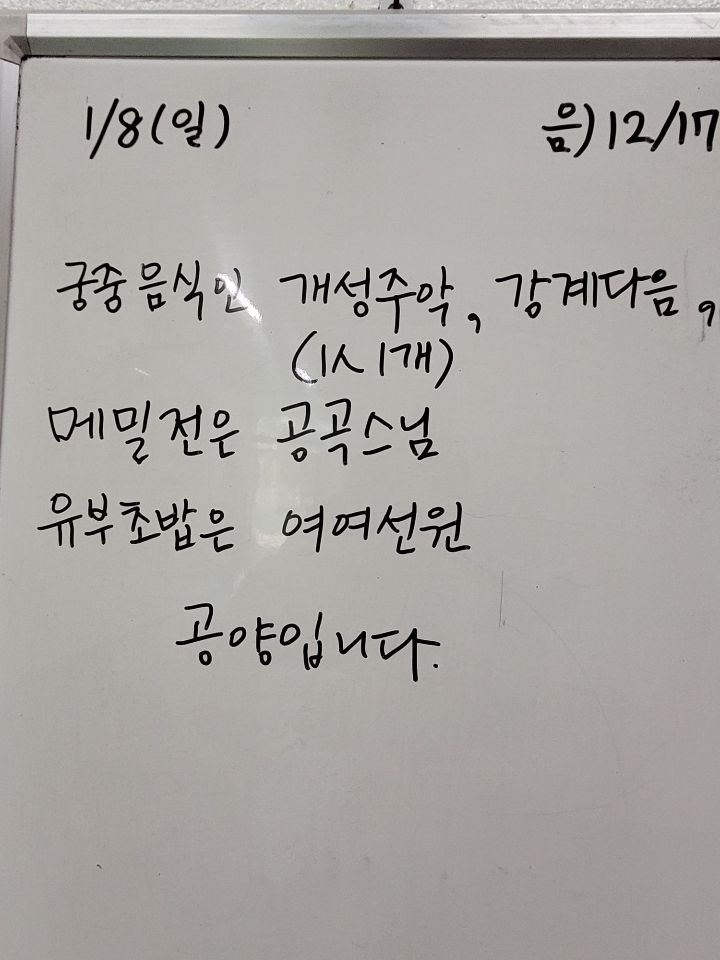 1/8(일) 음)12/17
궁중음식인 개성주악, 강계다음,
(1人1개)
메밀전은 공곡스님
유부초밥은 여여선원
공양입니다.